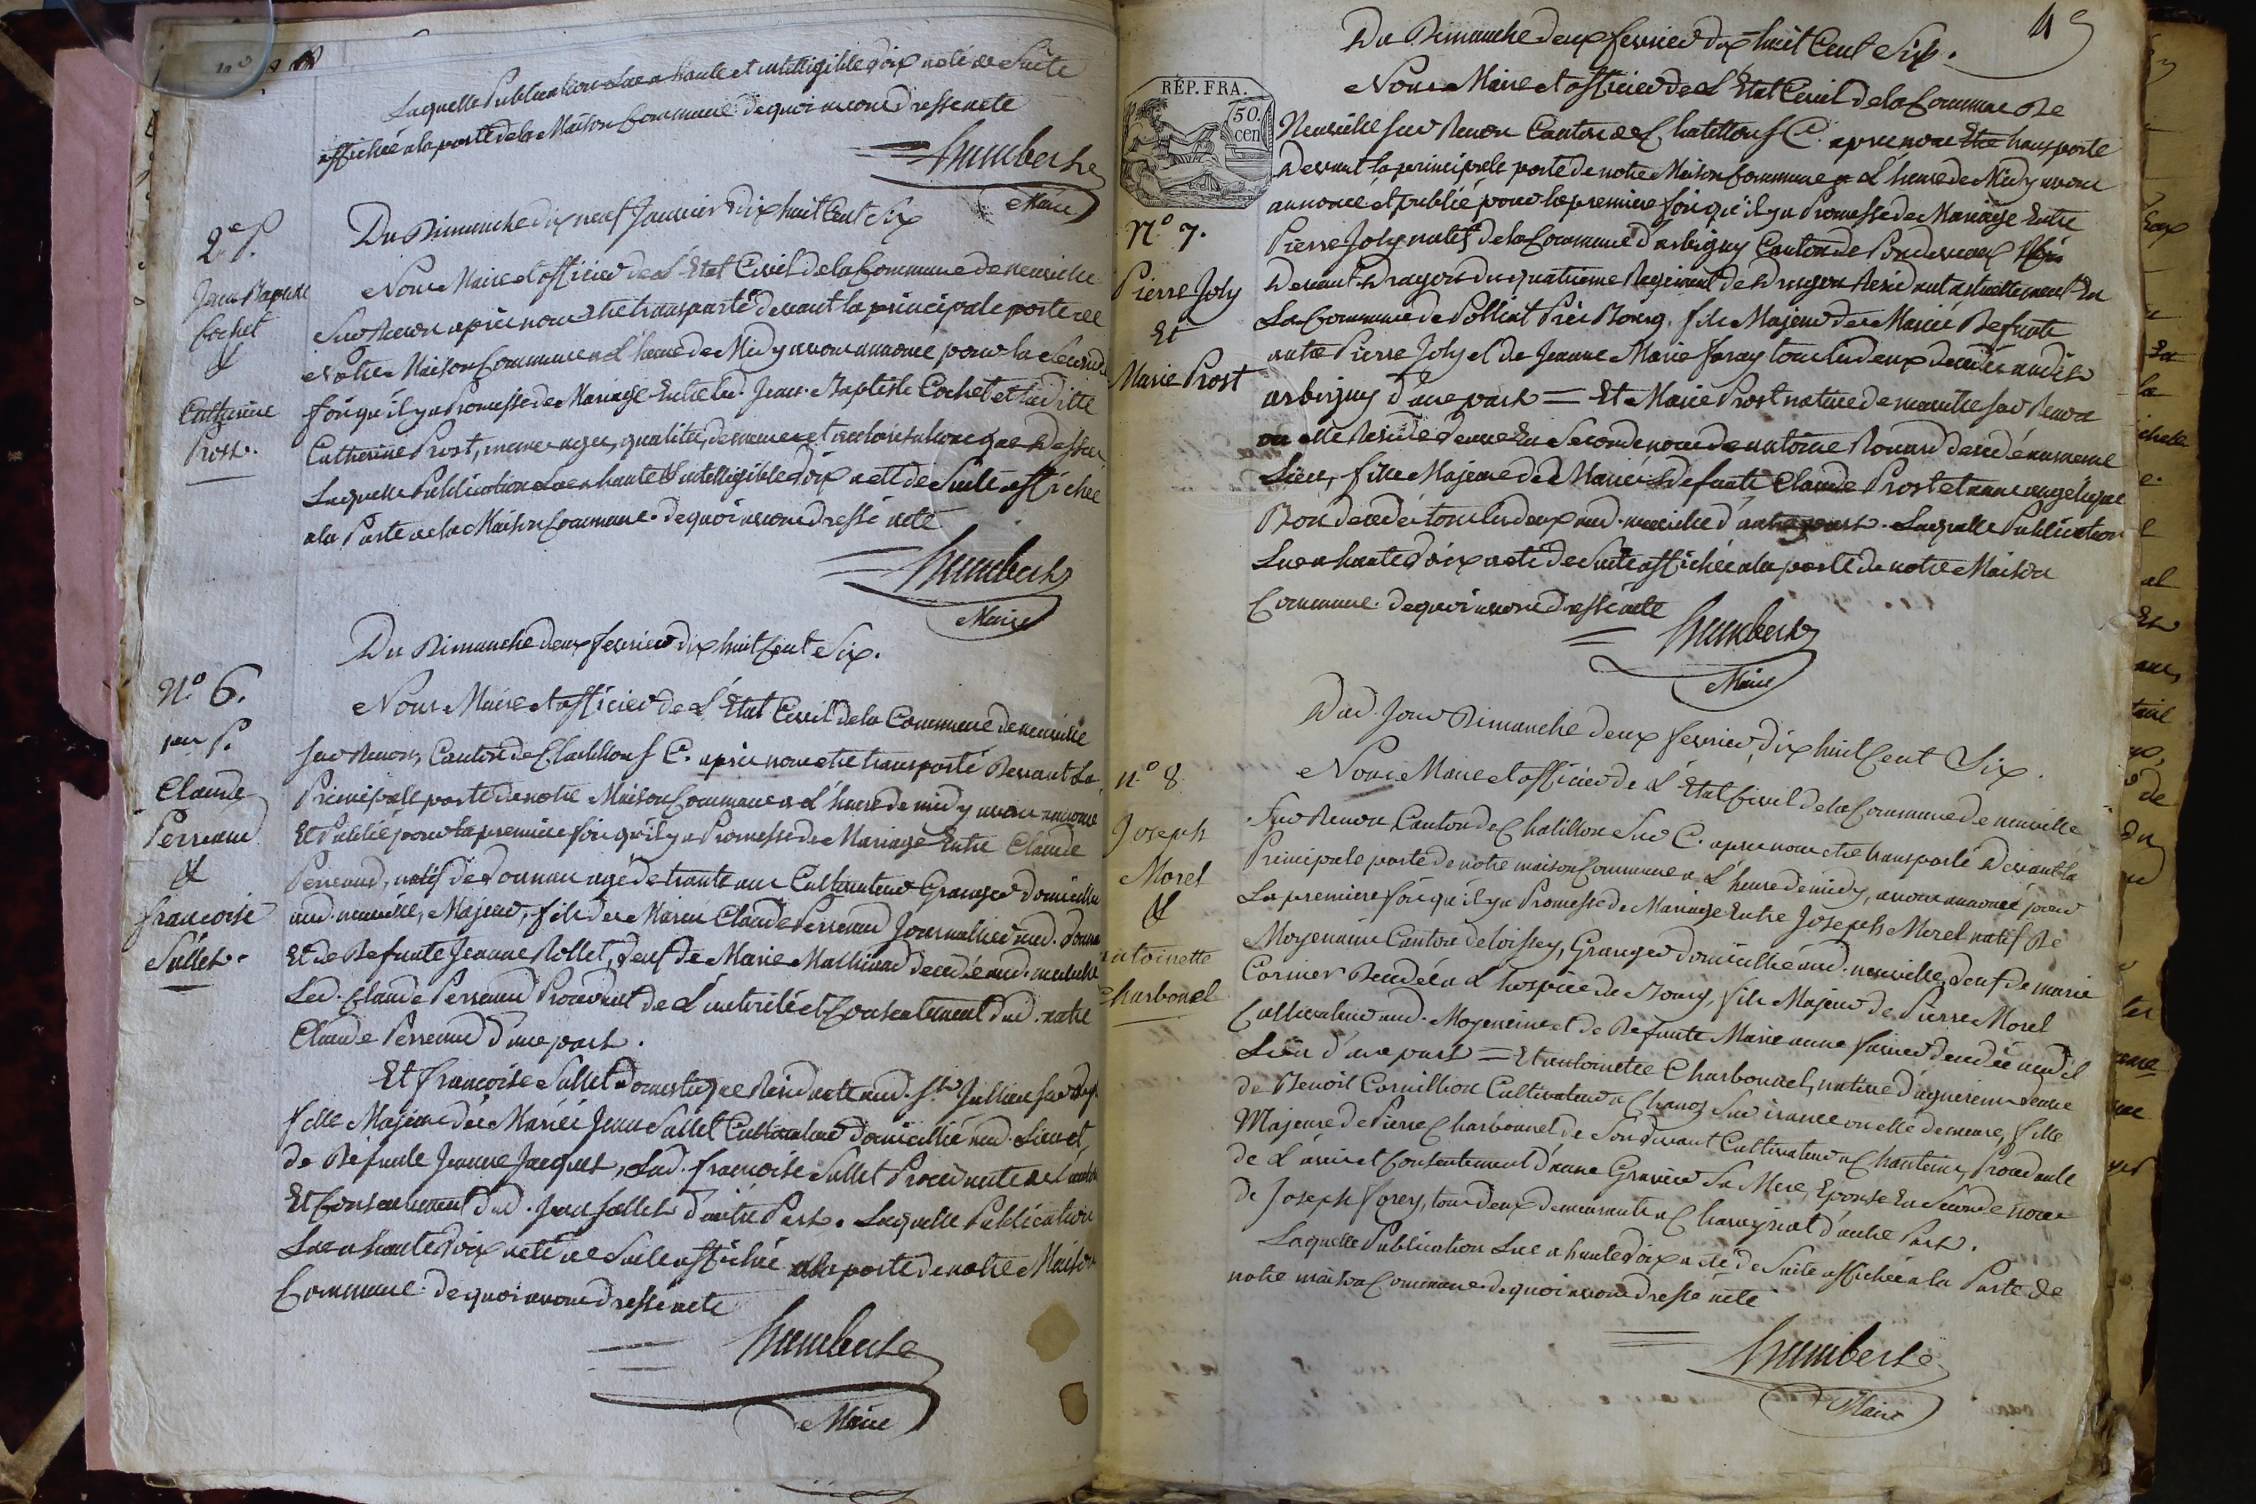 Laquelle Publication Lue a haute et intelligible voix a été de Suite
affichée a la porte de la Maison Commune. de quoi avons dressé acte
humbert
Maire
2e P.
Jean Baptiste
Cochet
&
Catherine
Prost.
Du Dimanche dix neuf Janvier dix huit Cent Six
Nous Maire et officier de L'Etat Civil de la Commune de neuville
Sur Renon apres nous etre transporté devant la principale porte de
Notre Maison Commune a L'heure de Midy avons annoncé pour la Seconde
fois qu'il y a Promesse de Mariage Entre led. Jean-Baptiste Cochet et ladite
Catherine Prost, meme ages, qualités, demeures et que Dessus
Laquelle Publication Lue a haute & intelligible voix a été de Suite affichée
a la Porte de la Maison Commune. de quoi avons dressé acte
humbert
Maire
N.o 6.
1er P.
Claude
Perreaud
&
francoise
Sallet.
Du Dimanche deux fevrier dix huit Cent Six.
Nous Maire et officier de L'Etat Civil de la Commune de neuville
Sur Renon, Canton de Chatillon f C. apres nous etre transporté Devant La
Principale porte de notre Maison Commune a L'heure de midy avons annoncé
Et Publié pour la premiere fois qu'il y a Promesse de Mariage Entre Claude
Perreaud, natif de agé de trante ans Cultivateur Granger domicilié
aud. neuville, Majeur, fils des Mariés Claude Perreaud Journallier aud.
Et de Defunte Jeanne Rollet, veuf de Marie decedée aud. neuville
Led. Claude Perreaud Procedant de L'autorité et Consentement dud. autre
Claude Perreaud d'une part.
Et francoise Sallet domestique Residante aud. St. Jullien Sur
fille Majeure des Mariés Jean Sallet Cultivateur domicillié aud. Lieu et
de Defunte Jeanne Jacquet, Lad. francoise Sallet Procedante de L'autorité
Et Consentement dud. Jean Sallet d'autre Part. Laquelle Publication
Lue a haute voix a été de Suite affichée a la porte de notre Maison
Commune. de quoi avons dressé acte
humbert
Maire
4
RÉP. FRA.
50.
cen
Du Dimanche deux fevrier dix huit Cent Six.
Nous Maire et officier de L'Etat Civil de la Commune De
Neuville Sur Renon Canton de Chatillon f C. apres nous Etre transporté
Devant la principale porte de notre Maison Commune a L'heure de Midy avons
annoncé et publié pour la premiere fois qu'il y a Promesse de Mariage Entre
N.o 7.
Pierre Joly
Et
Marie Prost
Pierre Joly natif de la Commune d'arbigny Canton de Pondevaux
Devant Dragon du quatrieme Regiment de Dragon Residant actuellement En
La Commune de Polliat Près Bourg, fils Majeur des Mariés Defunts
autre Pierre Joly et de Jeanne Marie faray tous les deux decedés audit
arbigny d'une part = Et Marie Prost native de neuville Sur Renon
ou elle Reside veuve En Seconde noce de antoine Ronard decedé au meme
Lieu, fille Majeure des Mariés Defunts Claude Prost et anne angelique
Bon decedés tous les deux aud. neuville d'autre part. Laquelle Publication
Lue a haute voix a été de Suite affichée a la porte de notre Maison
Commune. de quoi avons dressé acte
humbert
Maire
N.o 8
Joseph
Morel
&
antoinette
Charbonel
Dud. Jour Dimanche deux fevrier dix huit Cent Six.
Nous Maire et officier de L'Etat Civil de la Commune de neuville
Sur Renon Canton de Chatillon Sur C. apres nous etre transporté Devant la
Principale porte de notre maison Commune a L'heure de midy, avons annoncé pour
La premiere fois qu'il y a Promesse de Mariage Entre Joseph Morel natif De
Canton de loissey, Granger domicillié aud. neuville, veuf de marie
Cormier Decedée a L'hospice de Bourg, fils Majeur de Pierre Morel
Cultivateur aud. et de Defunte Marie anne decedée aud.
Lieu d'une part = Et antoinette Charbonnel, native veuve
de Benoit Cornillion Cultivateur a Chanoz Sur irance ou elle demeure, fille
Majeure de Pierre Charbonnel de Son vivant Cultivateur a Chanteins, Procedante
de L'avis et Consentement d'anne Gravier Sa Mere, Epouse En Seconde noce
de Joseph forey, tous deux demeurants a Chaveyriat d'autre Part.
Laquelle Publication Lue a haute voix a été de Suite affichée a la Porte de
notre maison Commune de quoi avons dressé acte
humbert
Maire